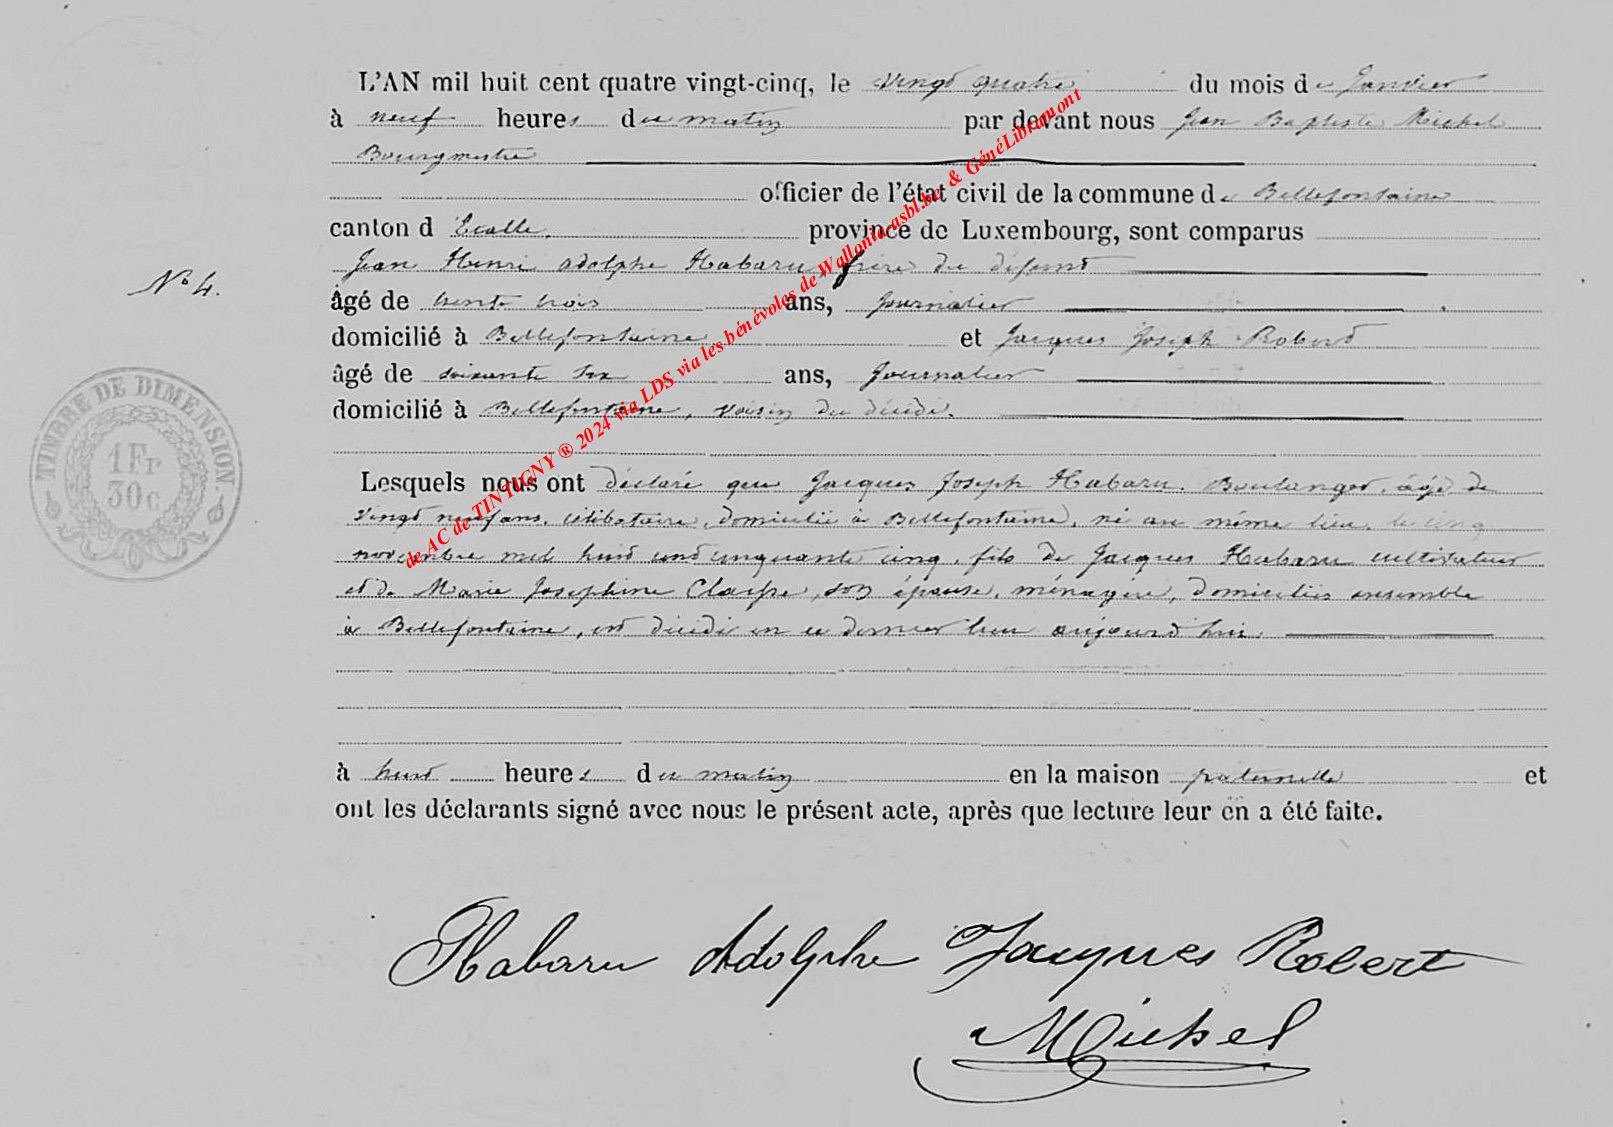 L'AN mil huit cent quatre vingt-cinq, le vingt quatre du mois de Janvier
à neuf heures du matin par devant nous Jean Baptiste Michel
Bourgmestre
officier de l'état civil de la commune de Bellefontaine
canton d'Etalle, province de Luxembourg, sont comparus
Jean Henri adolphe Habaru, frère du defunt
N° 4.
âgé de trente trois ans, journalier
domicilié à Bellefontaine et Jacques Joseph Robert
âgé de soixante six ans, Journalier
domicilié à Bellefontaine, voisin du décédé.
Lesquels nous ont déclaré que Jacques Joseph Habaru, Boulanger, âgé de
vingt neuf ans, célibataire, domicilié à Bellefontaine, né au même lieu, le cinq
novembre mil huit cent cinquante cinq, fils de Jacques Habaru cultivateur
et de Marie Josephine Claisse, son épouse, ménagère, domiciliés ensemble
à Bellefontaine, est décédé en ce dernier lieu aujourd'hui,
à huit heures du matin en la maison paternelle et
ont les déclarants signé avec nous le présent acte, après que lecture leur en a été faite.
Habaru Adolphe Jacques Robert
Michel
TIMBRE DE DIMENSION
1 Fr
30 c
de AC de TINTIGNY ® 2024 via LDS via les bénévoles de Wallonia-asbl.be & GénéLibramont